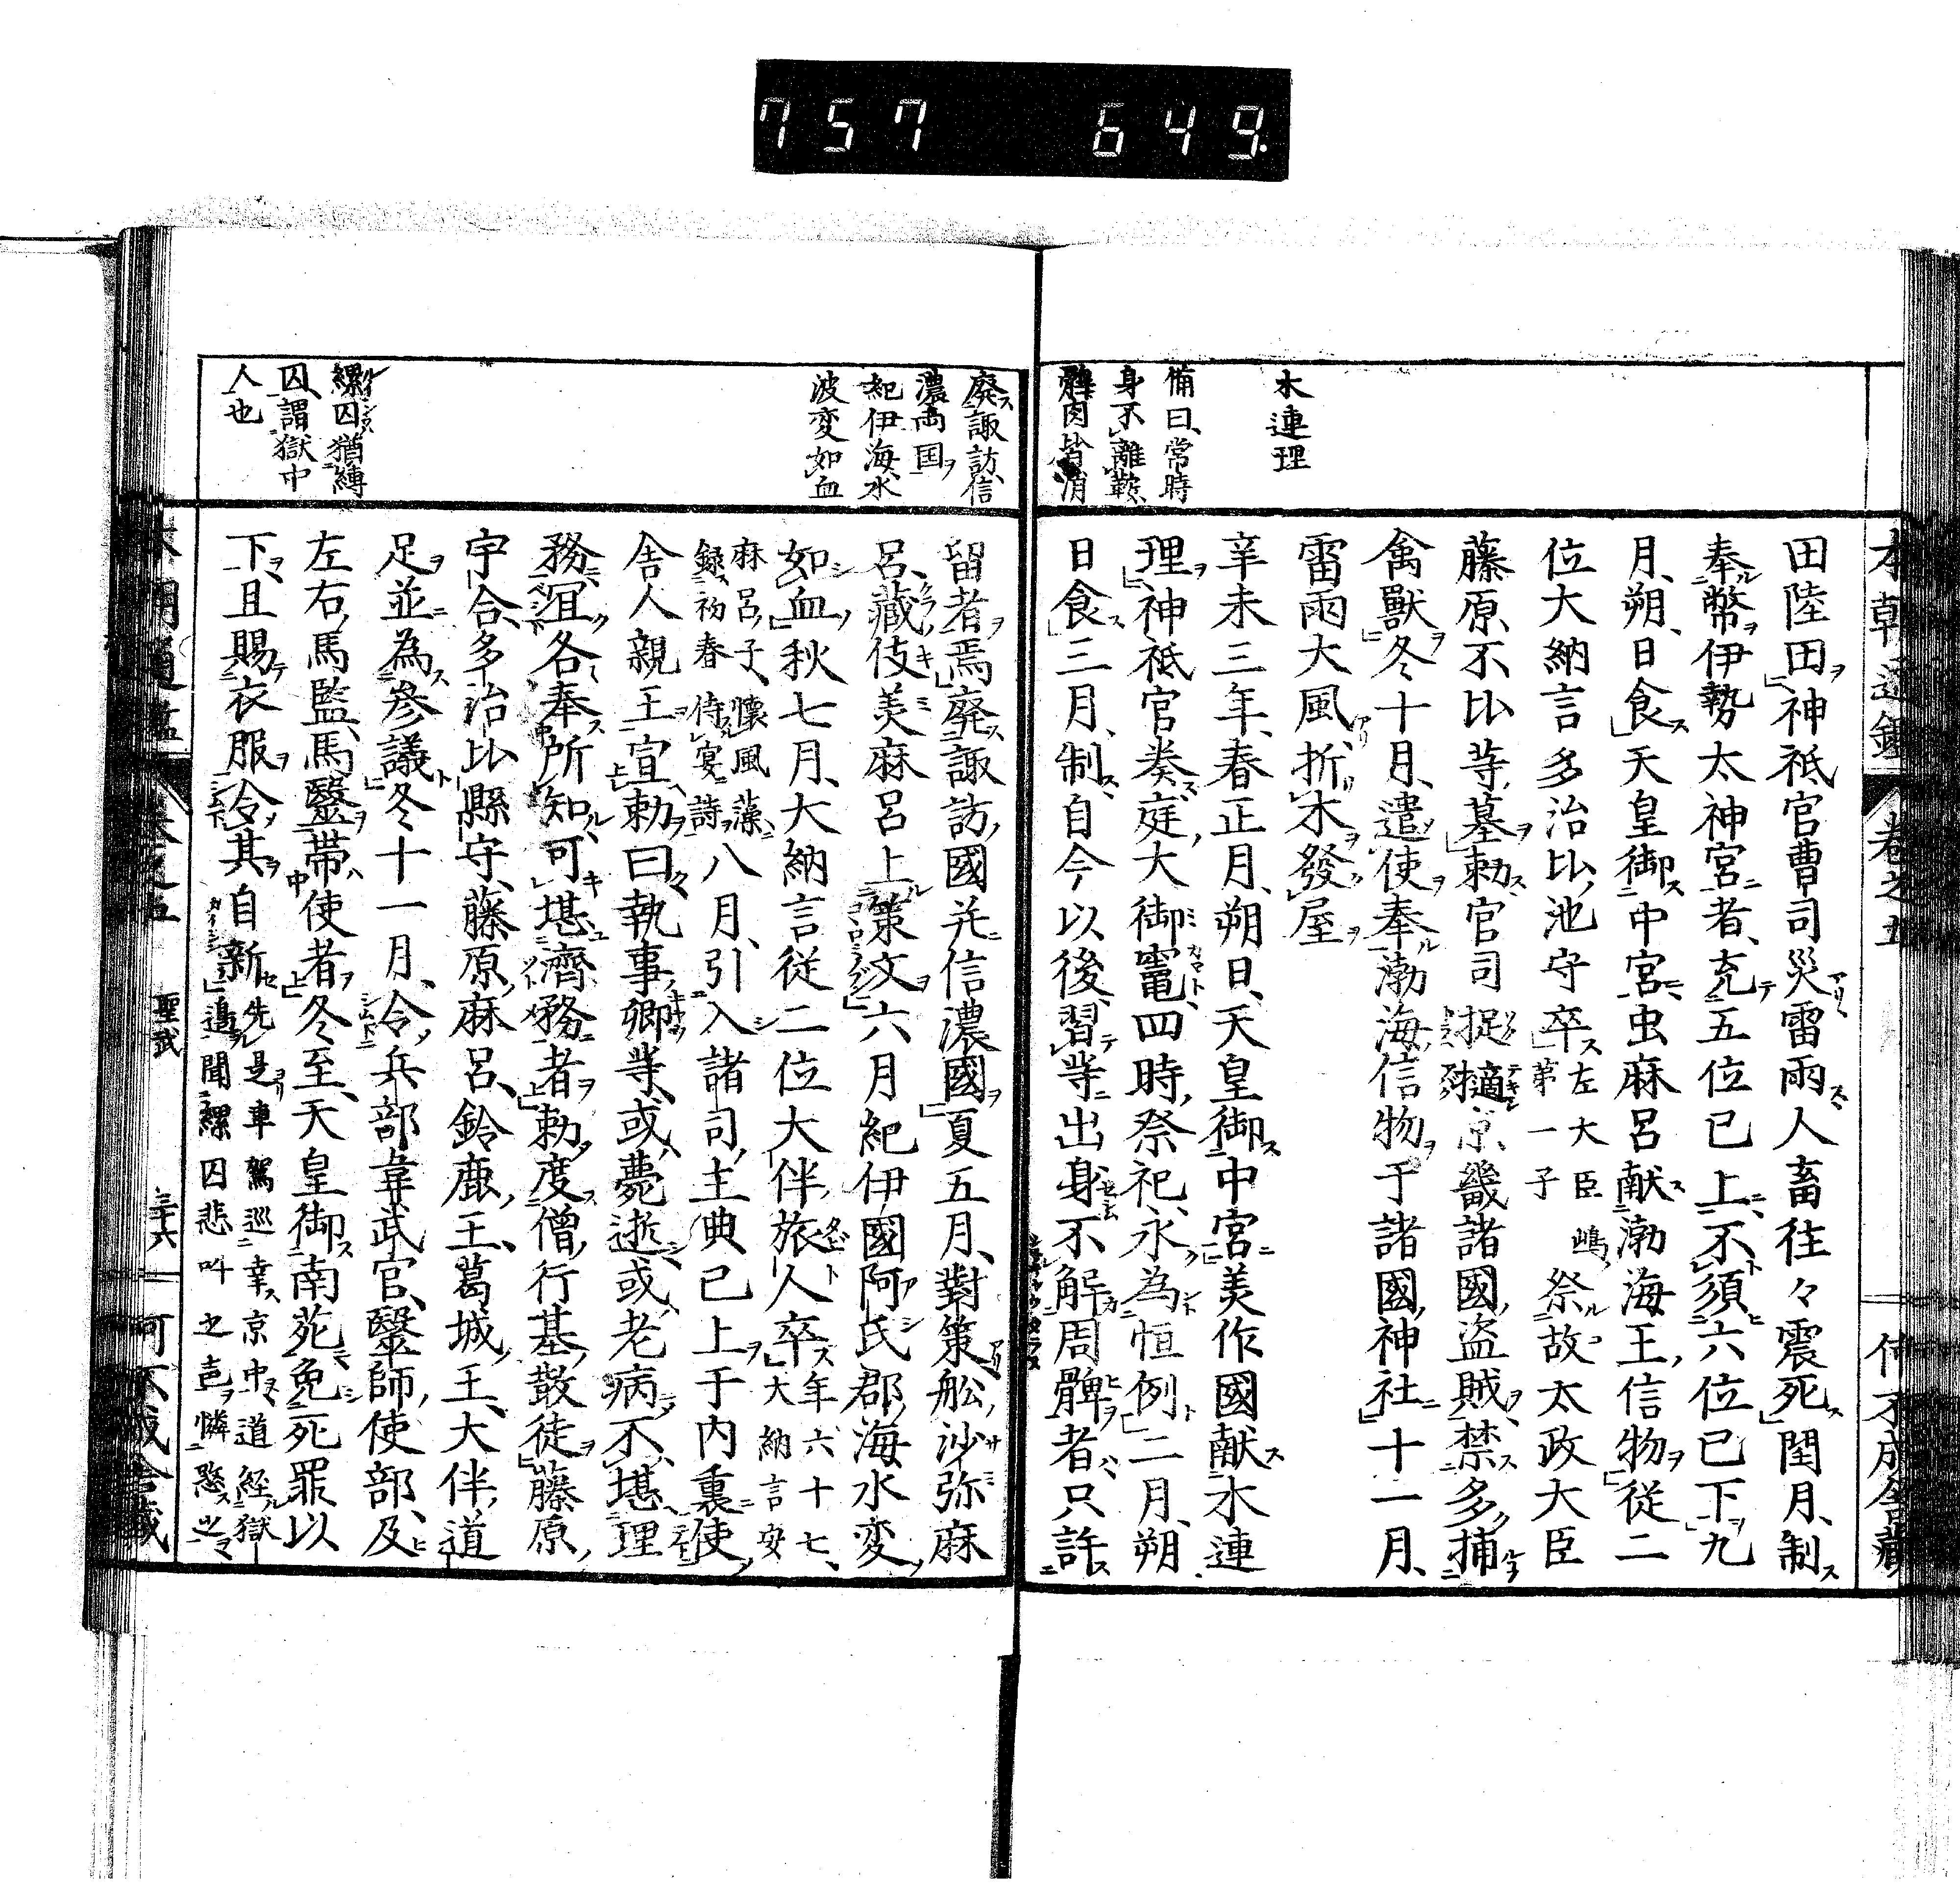 757 649
木連理
備曰、常時
身不離鞍、
髀肉皆消
田陸田神祇官曹司災雷雨人畜往々震死閏月、制
奉幣伊勢太神宮者、充五位已上、不須六位已下九
月、朔、日食天皇御中宮虫麻呂献渤海王信物従二
位大納言多治比池守卒左大臣嶋第一子祭故太政大臣
藤原不比等墓勅官司捉搦京畿諸國盗賊禁多捕
禽獣冬十月、遣使奉渤海信物于諸國神社十一月、
雷雨大風、折木發屋
辛未三年、春正月、朔日、天皇御中宮美作國献木連
理神祇官奏庭大御竈、四時祭祀、永為恒例二月、朔
日食三月、制自今以後、習等出身不解周髀者只許
廃諏訪信
濃両国
紀伊海水
波変如血
縲囚猶縛
囚、謂獄中
人也
留者焉廃諏訪國并信濃國夏五月、對策舩沙弥麻
呂、藏伎美麻呂上策文六月紀伊國阿氐郡海水変
如血秋七月、大納言従二位大伴旅人卒年六十七、大納言安
麻呂子、懐風藻録初春侍宴詩八月、引入諸司主典已上于内裏使
舎人親王宣勅曰執事卿等、或薨逝或老病不堪理
務宜各奉所知可堪濟務者勅度僧行基散徒藤原
宇合、多治比縣守、藤原麻呂、鈴鹿王、葛城王、大伴道
足並為参議冬十一月、令兵部韋武官、醫師使部、及
左右馬監、馬醫帯使者冬至、天皇御南苑免死罪以
下、且賜衣服令其自新先是車駕巡幸京中道経獄邊聞縲囚悲叫之声憐愍之
聖武
三十六